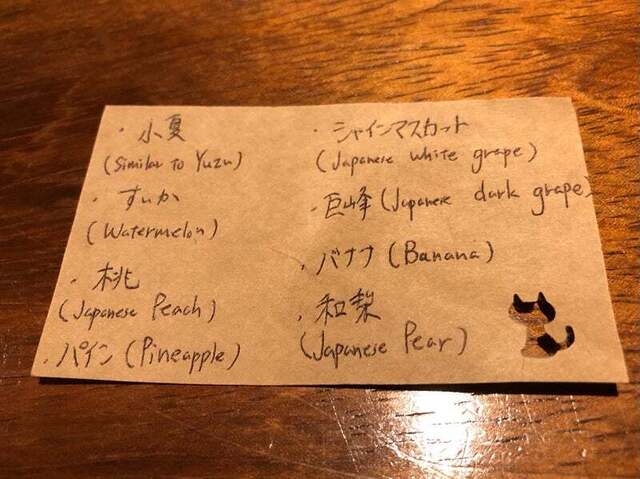 ・小夏
(Similar to Yuzu)
・すいか
(Watermelon)
・桃
(Japanese Peach)
・パイン (Pineapple)
・シャインマスカット
(Japanese white grape)
・巨峰 (Japanese dark grape)
・バナナ (Banana)
・和梨
(Japanese Pear)